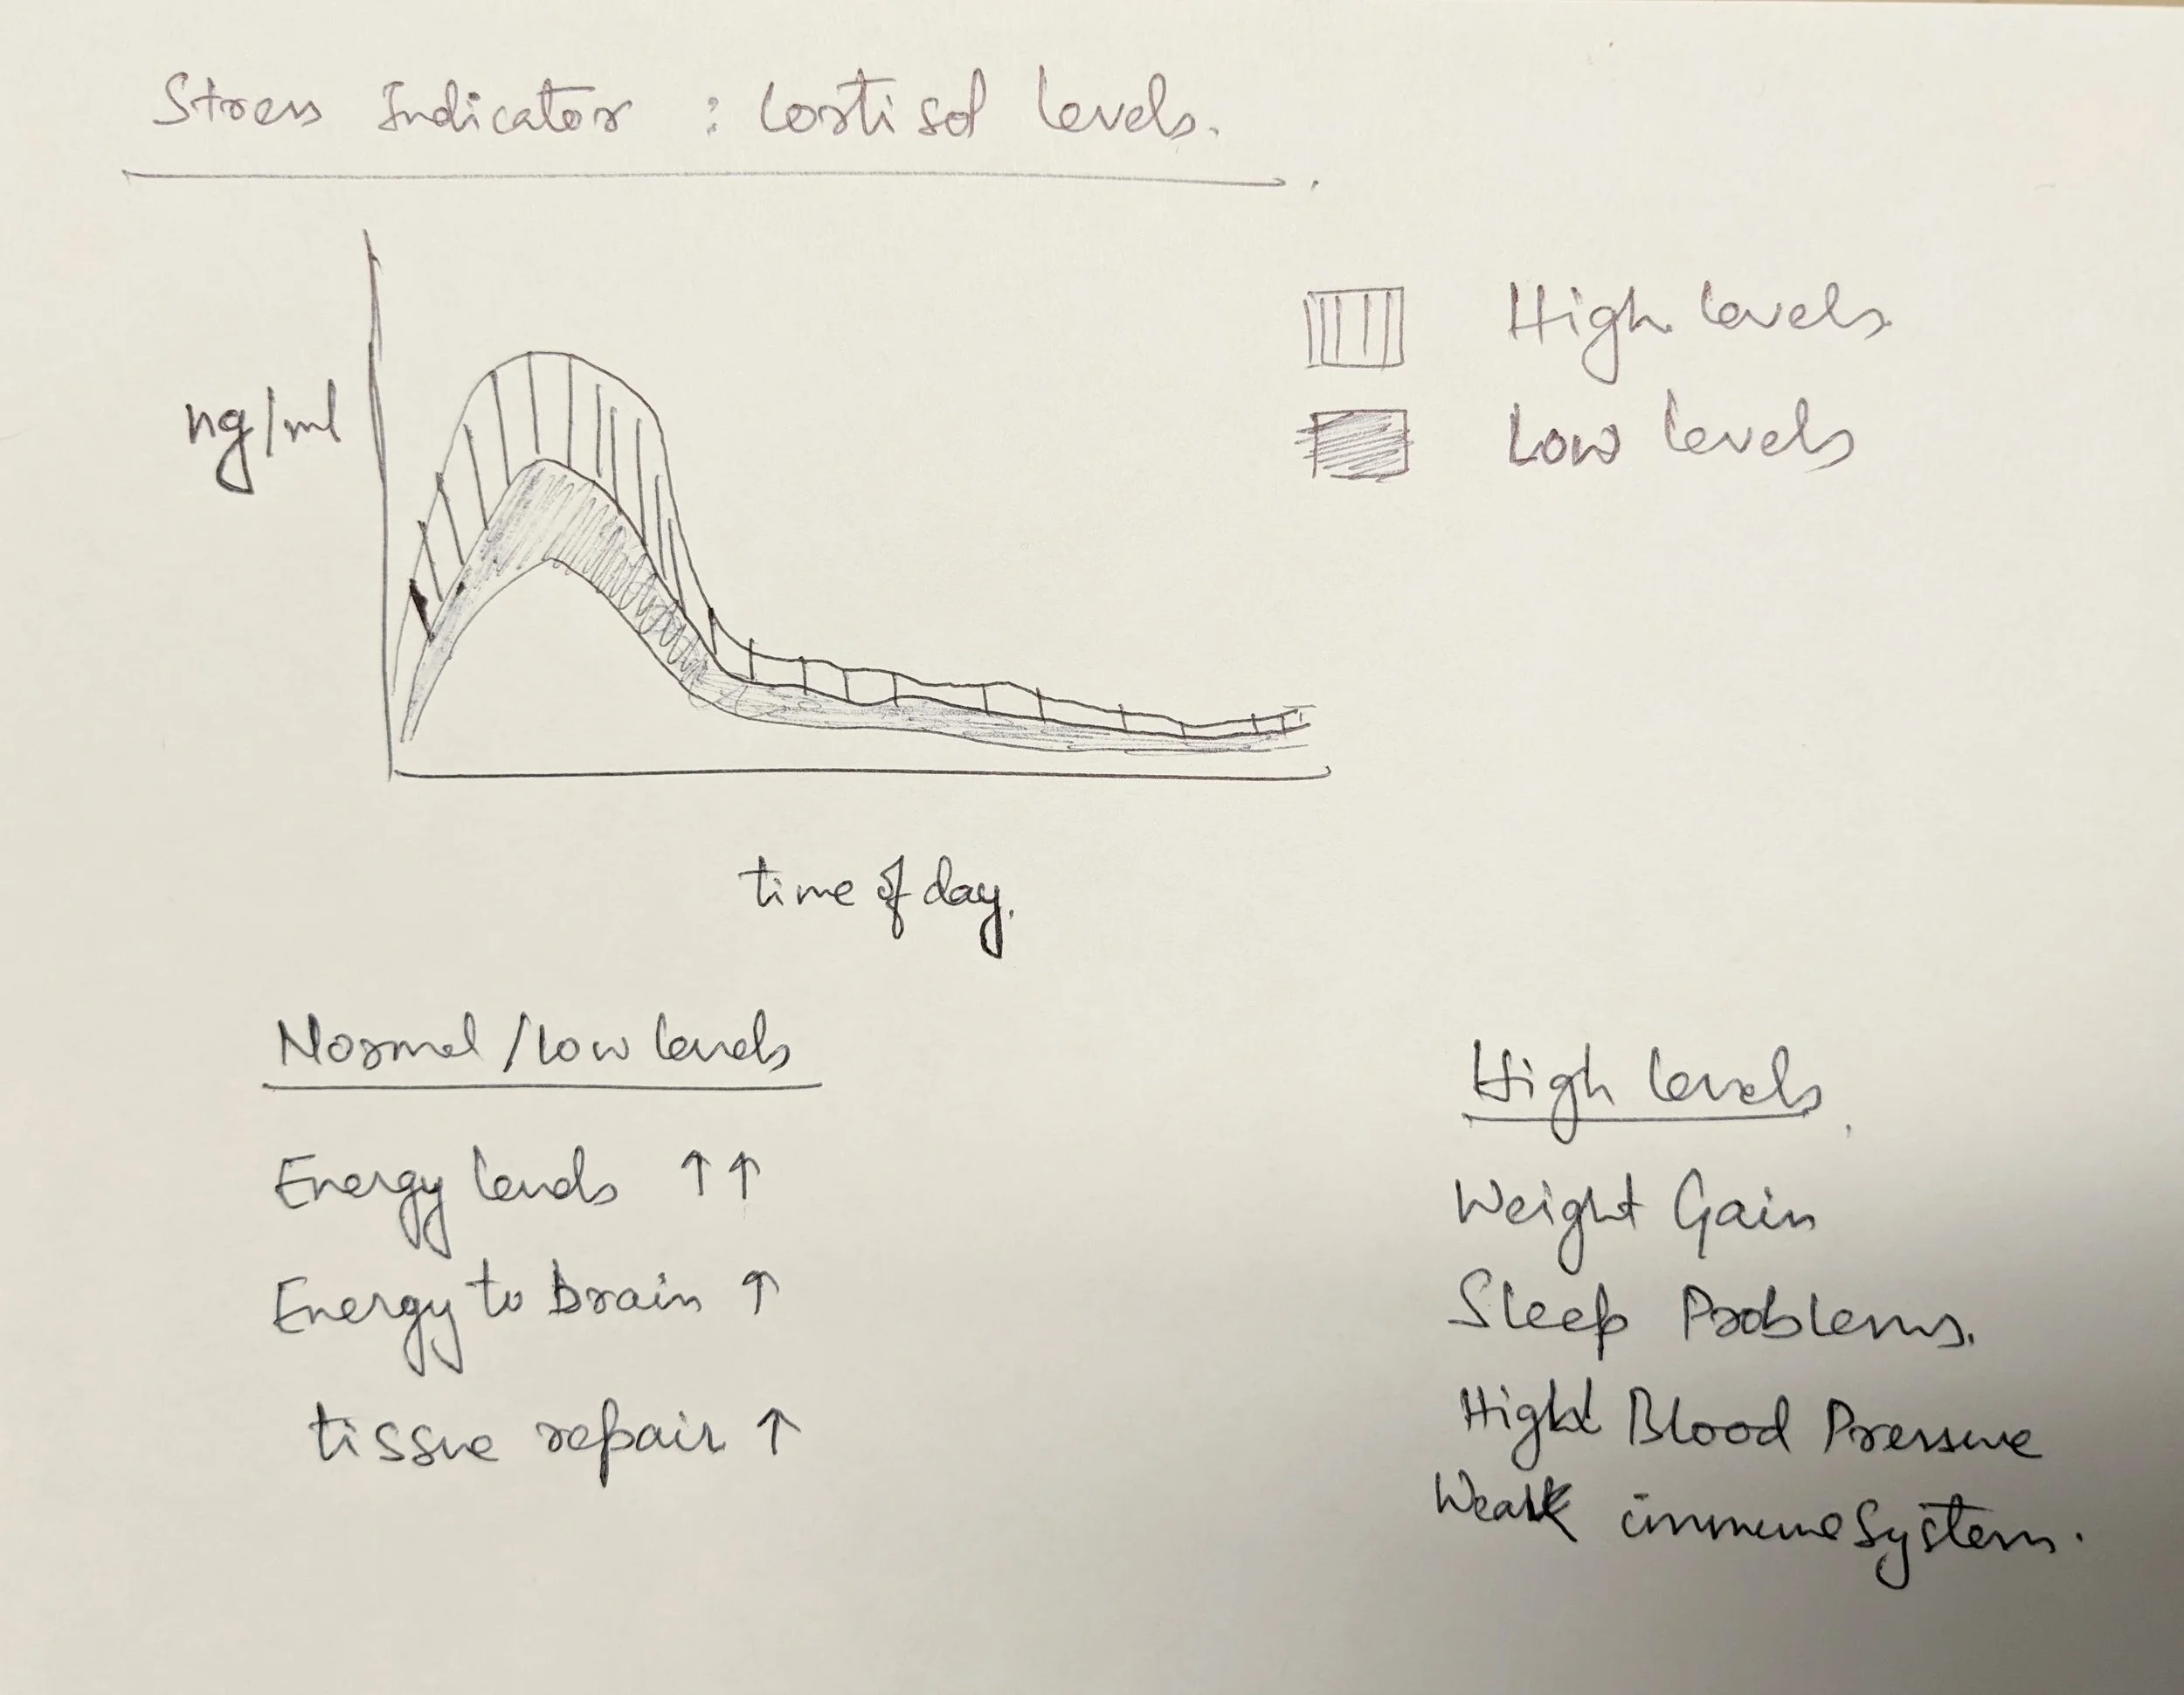 Stress Indicator : Cortisol levels.
High levels
Low levels
ng/ml
time of day.
Normal / low levels
Energy levels ↑↑
Energy to brain ↑
tissue repair ↑
High levels
Weight Gain
Sleep Problems.
High Blood Pressure
Weak immune system.